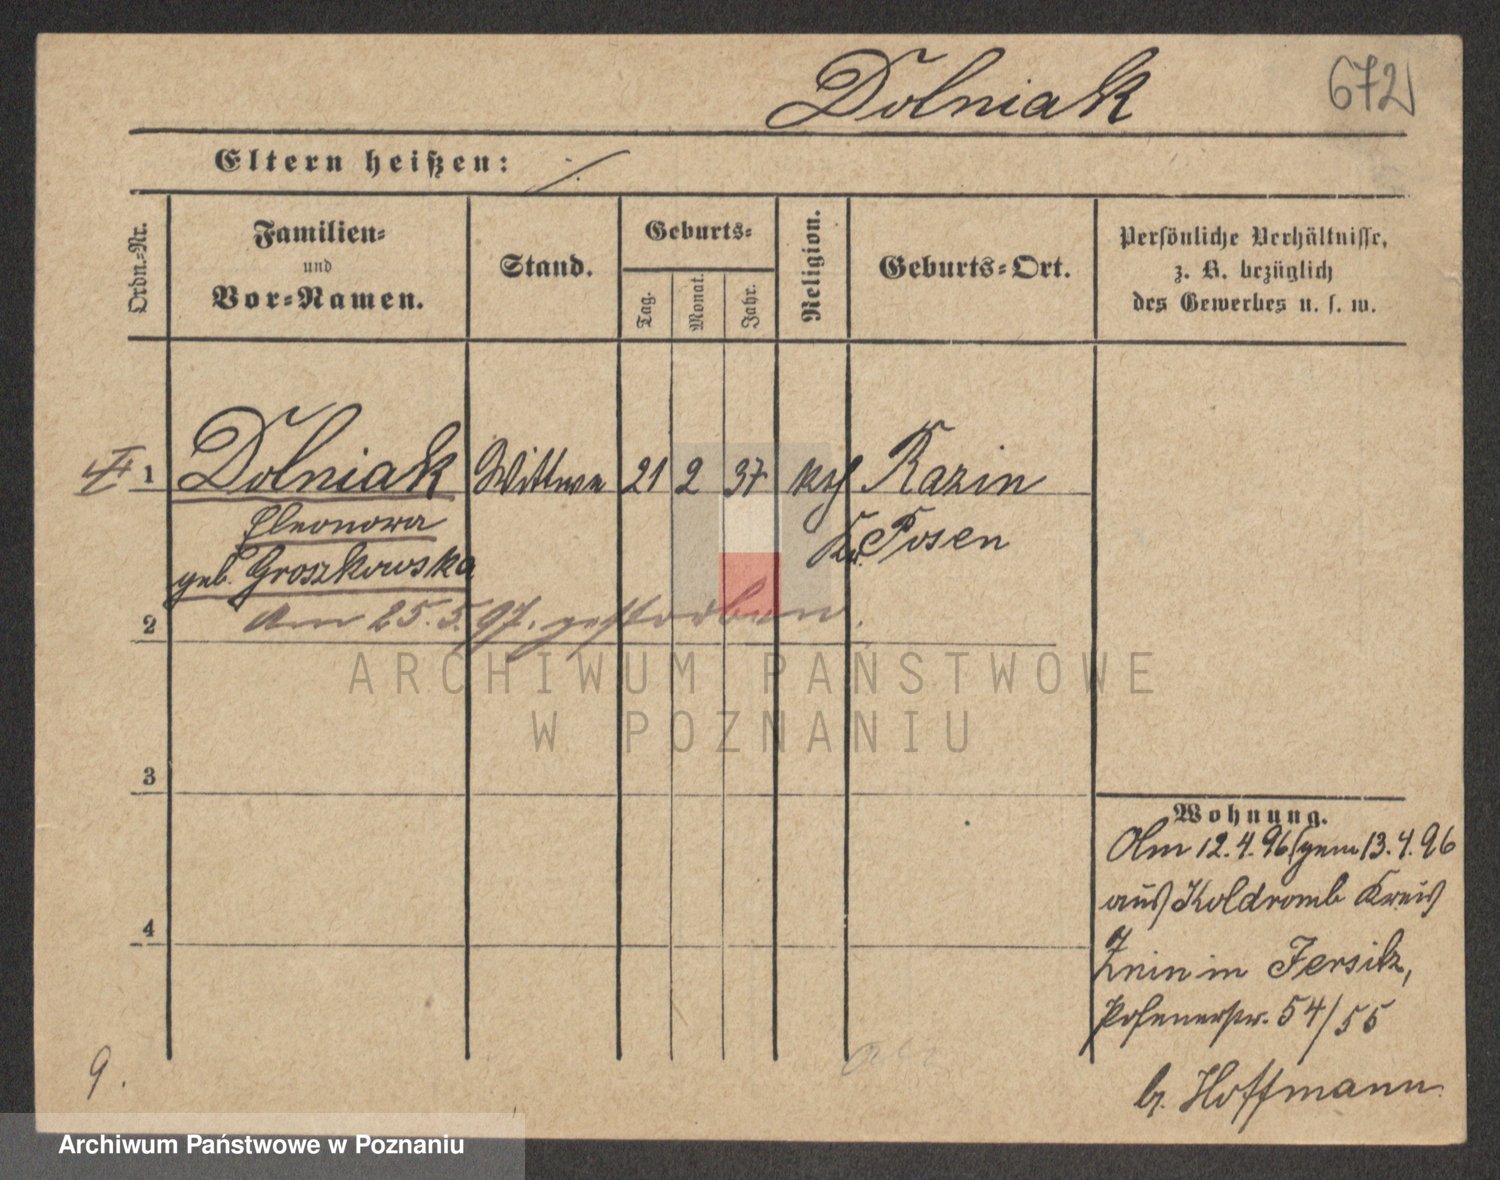 Dolniak
672
Eltern heißen: ./.
Ordn.=Nr.
Familien=
und
Vor=Namen.
Stand.
Geburts=
Tag.
Monat.
Jahr.
Religion.
Geburts=Ort.
Persönliche Verhältnisse,
z. B. bezüglich
des Gewerbes u. s. w.
1 Dolniak Wittwe 21 2 37 kth Razin
Eleonora Kr. Posen
geb. Groszkowska
Am 25.5.97. gestorben.
2
ARCHIWUM PAŃSTWOWE
W POZNANIU
3
4
Wohnung.
Am 12.4.96 gem 13.4.96
aus Koldromb Kreis
Znin in Jersitz,
Posenerstr. 54/55
b. Hoffmann
9.
Archiwum Państwowe w Poznaniu